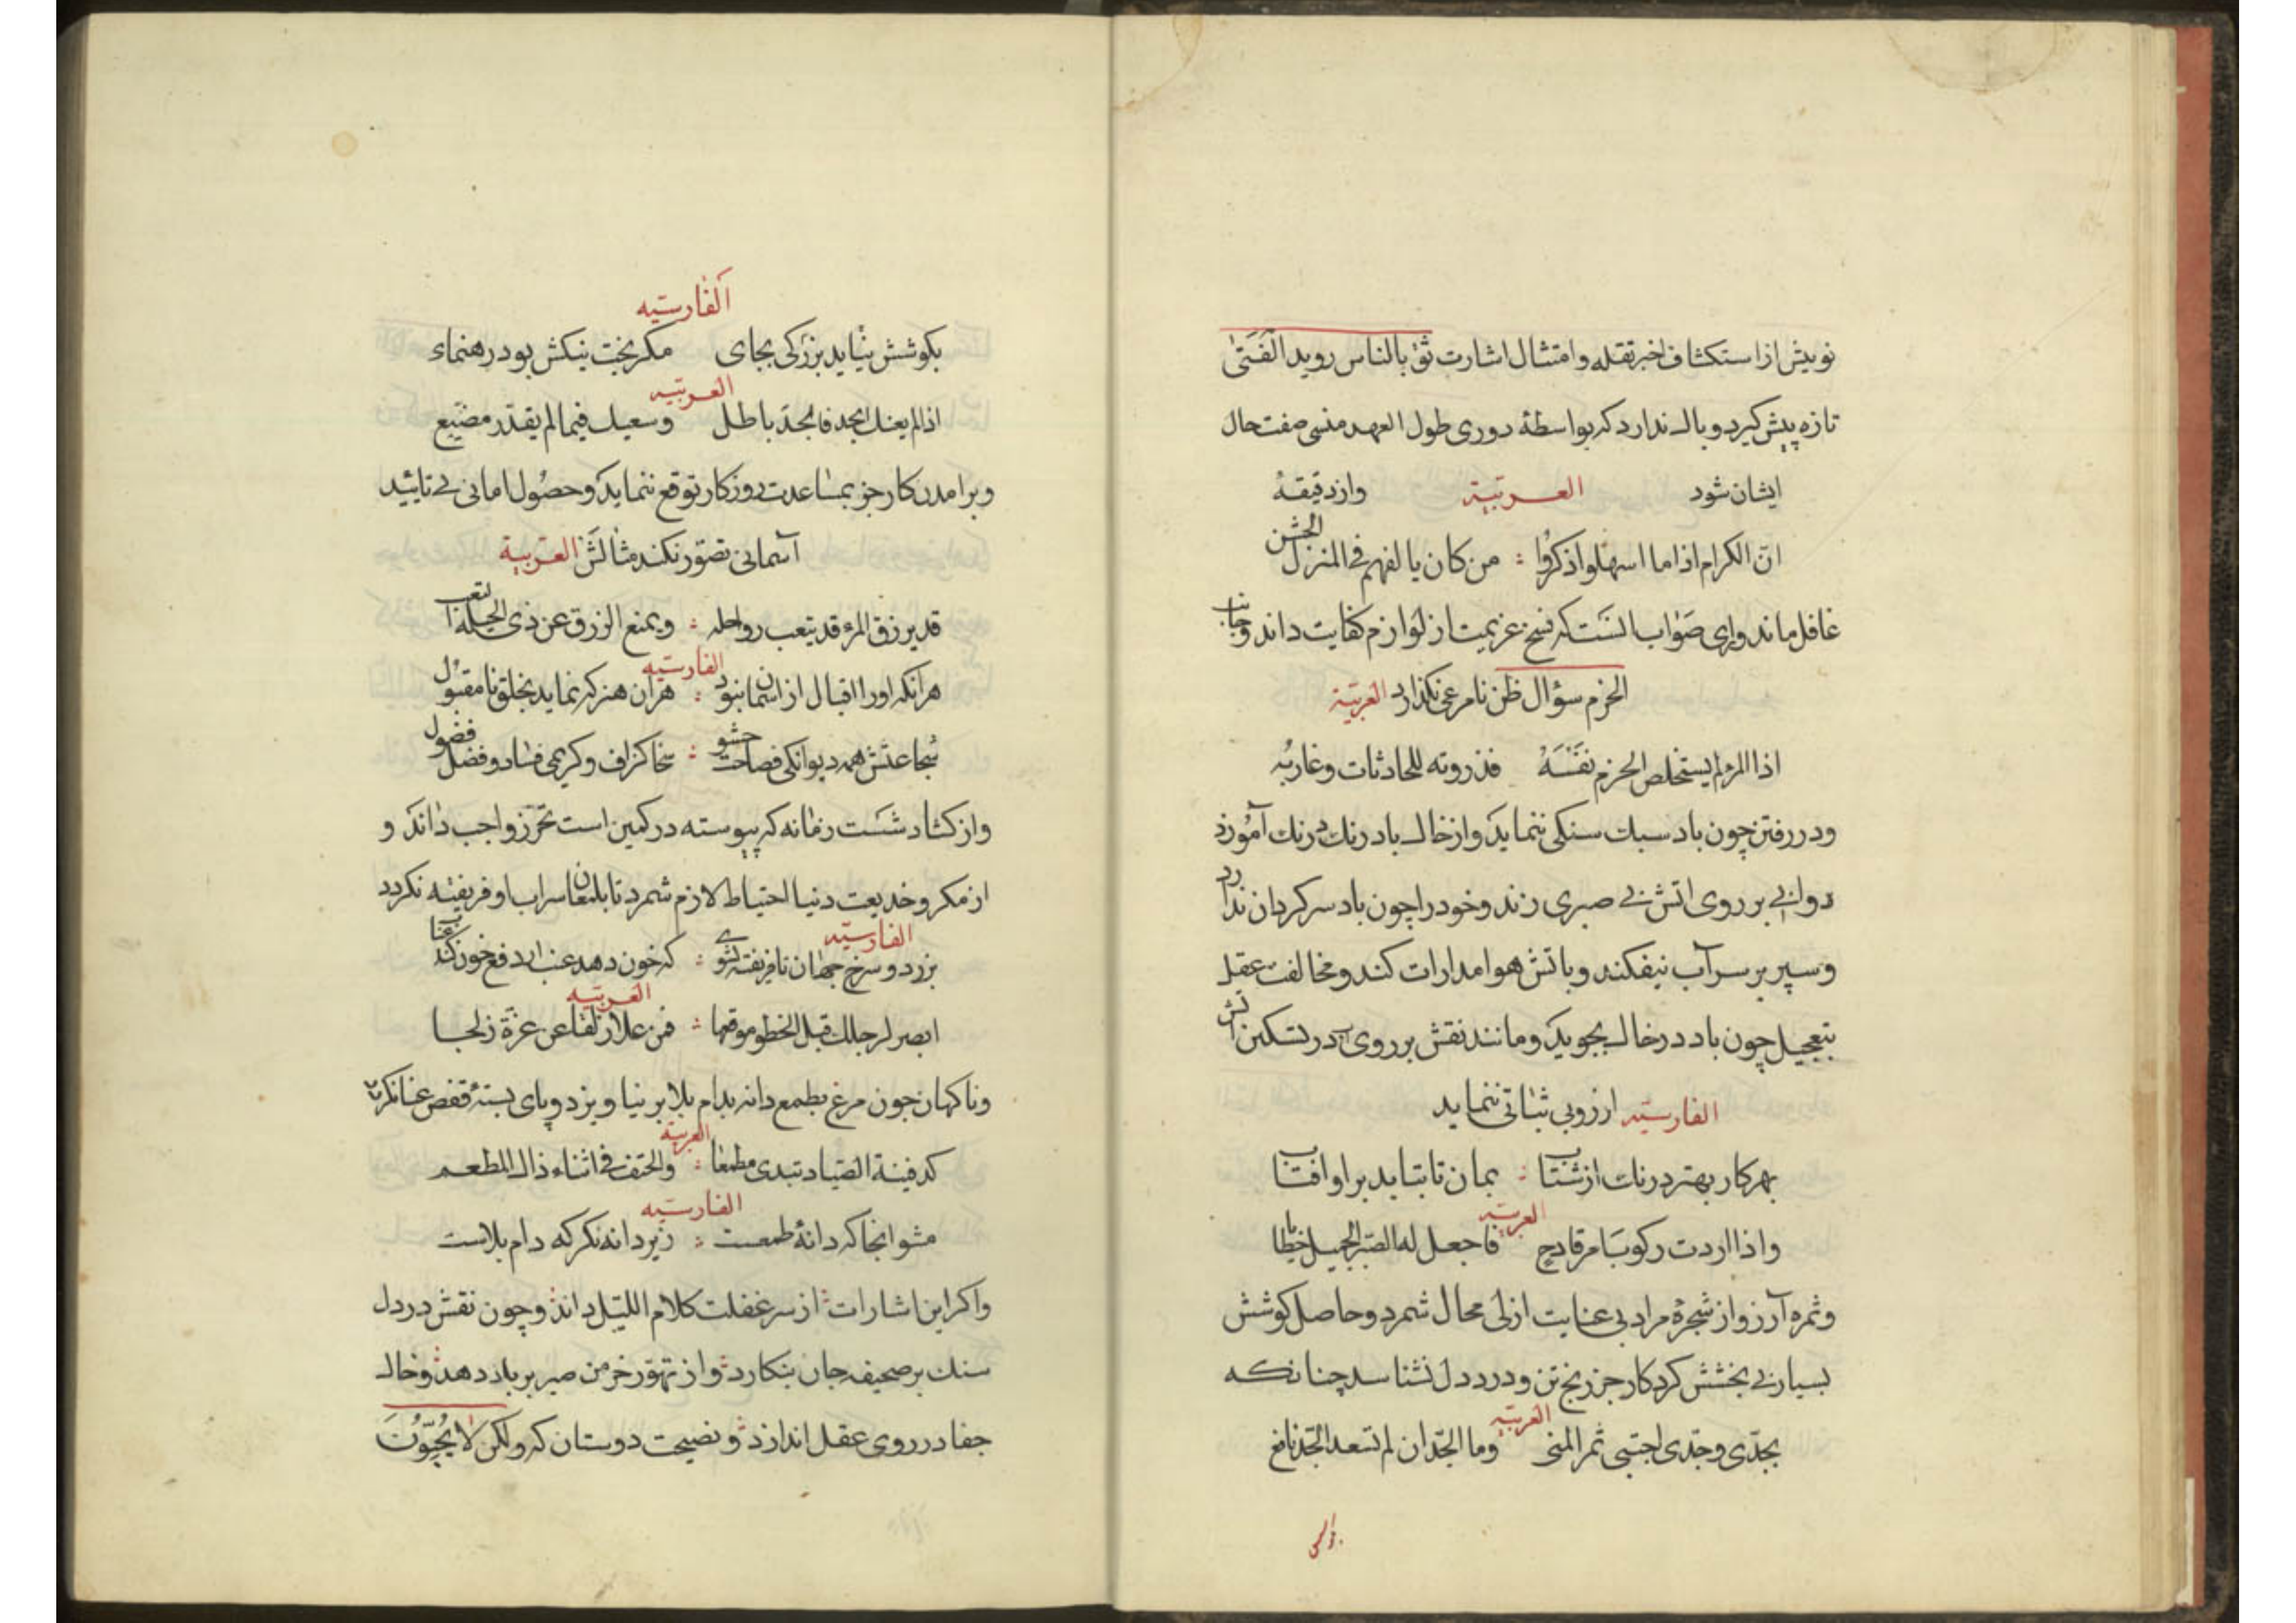 نویش از استکشاف اخبر تقله و امتثال اشارت ثق بالناس روید الفتی
تازه پیش کیرد و بال ندارد که بواسطهٔ دوری طول العهد منسی صفت حال
ایشان شود العربیة واز دقیقهٔ
ان الکرام اذا ما اسهلوا ذکروا : من کان یالفهم فی المنزل الخشن
غافل ماند و رای صواب انست که نسخ عزیمت از لوازم کفایت داند و جانب
الحزم سؤال ظن نامرعی نکذارد العربیة
اذا المرء لم یستخلص الحزم نفسه فذروته للحادثات وغاربه
ودر رفتن چون باد سبک سنکی ننماید و از خاک باد رنک درنک آموزد
دوانی بر روی اتش بی صبری زند و خود را چون باد سرکردان ندارد
وسپر بر سر آب نیفکند و با تش هوا مدارات کند و مخالفت عقل
بتعجیل چون باد در خاک بجوید و مانند نقش بر روی آب در تسکین اتش
الفارسیه ارزوبی ثباتی ننماید
بهر کار بهتر درنک از شتاب : بمان تا بتابد بر او افتاب
العربیه
واذا اردت رکوب امر قادح فاجعل له الصبر الجمیل خطابا
وثمره آرزو از شجرهٔ مراد بی عنایت ازلی محال شمرد و حاصل کوشش
بسیار بی بخشش کردکار جز رنج تن و درد دل نشناسد چنانکه
العربیه
بجدی وجدی اجتبی ثمر المنی وما الجد ان لم تسعد الجد نافع
الفارسیه
بکوشش نیاید بزرکی بجای مکر بخت نیکش بود رهنمای
العربیه
اذا لم یعنک الجد فالجد باطل وسعیک فیما لم یقدر مضیع
وبرامدن کار جز بمساعدت روزکار توقع ننماید و حصول امانی بی تائید
آسمانی تصور نکند مثالش العربیة
قد یرزق المرء قد یتعب رواحله : ویمنع الرزق عن ذی الحیلة التعب
الفارسیه
هرانکه اورا اقبال از اسمان نبود : هران هنر که نماید بخلق نامقبول
شجاعتش همه دیوانکی فصاحت حشو : سخا کزاف و کریمی فساد و فضل فضول
واز کشاد شست زمانه که پیوسته در کمین است تحرز واجب داند و
از مکر و خدیعت دنیا احتیاط لازم شمرد تا بلمعان سراب او فریفته نکردد
الفارسیه
بزرد و سرخ جهان تا فریفته نشوی : که خون دهد عنب ار دفع خون کند عناب
العربیه
ابصر لرجلک قبل الخطو موقعها : فمن علا زلقا عن غرة زلجا
وناکهان چون مرغ بطمع دانه بدام بلا بر نیاویزد و پای بستهٔ قفص عنا نکردد
العربیه
کدفینة الصیاد تبدی مطمعا : والحتف فی اثناء ذاک المطعم
الفارسیه
مشو انجا که دانهٔ طمعست : زیر دانه نکر که دام بلاست
واکر این اشارات از سر غفلت کلام اللیل داند و چون نقش در دل
سنک بر صحیفه جان بنکارد و از تهور خرمن صبر بر باد دهد و خاک
جفا در روی عقل اندازد و نصیحت دوستان که ولکن لا یحبون